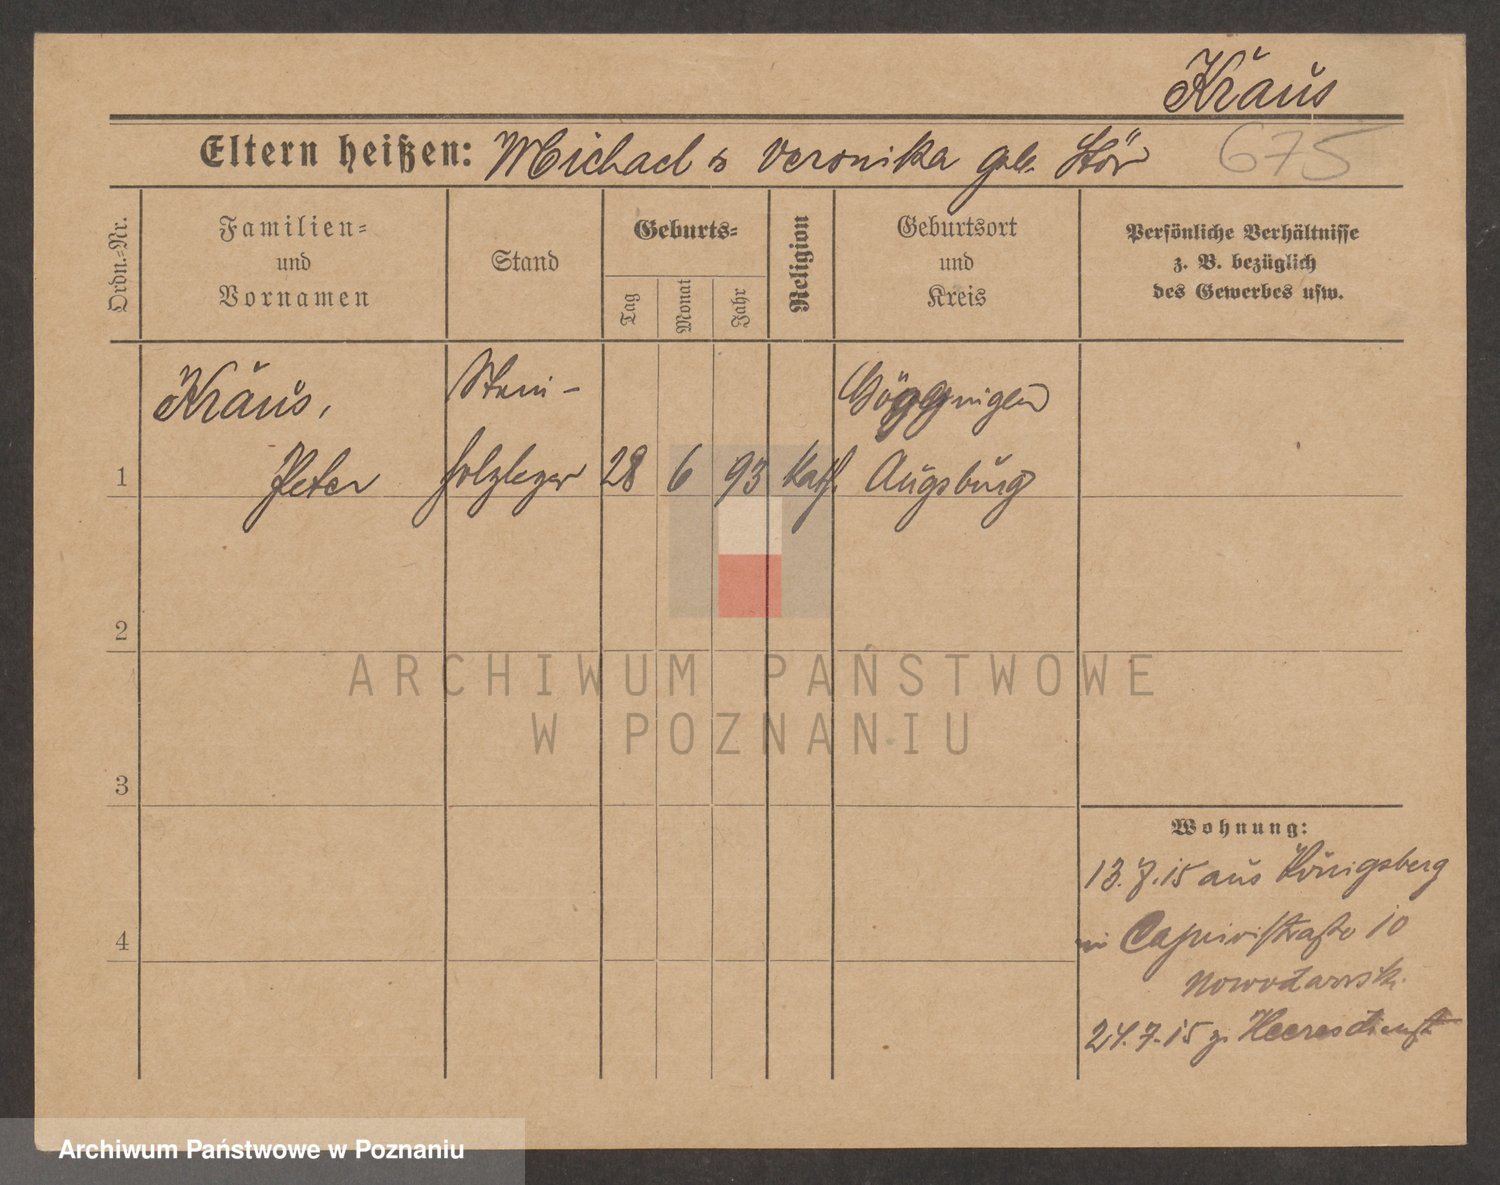 Kraus
Eltern heißen: Michael & Veronika geb. Stör
675
Ordn.=Nr.
Familien=
und
Vornamen
Stand
Geburts=
Tag
Monat
Jahr
Religion
Geburtsort
und
Kreis
Persönliche Verhältnisse
z. B. bezüglich
des Gewerbes usw.
Kraus, Stein- Göggingen
1 Peter holzleger 28 6 93 kath. Augsburg
2
ARCHIWUM PAŃSTWOWE
W POZNANIU
3
Wohnung:
13.7.15 aus Königsberg
4
in Caprivistraße 10
24.7.15 z. Heeresdienst
Archiwum Państwowe w Poznaniu